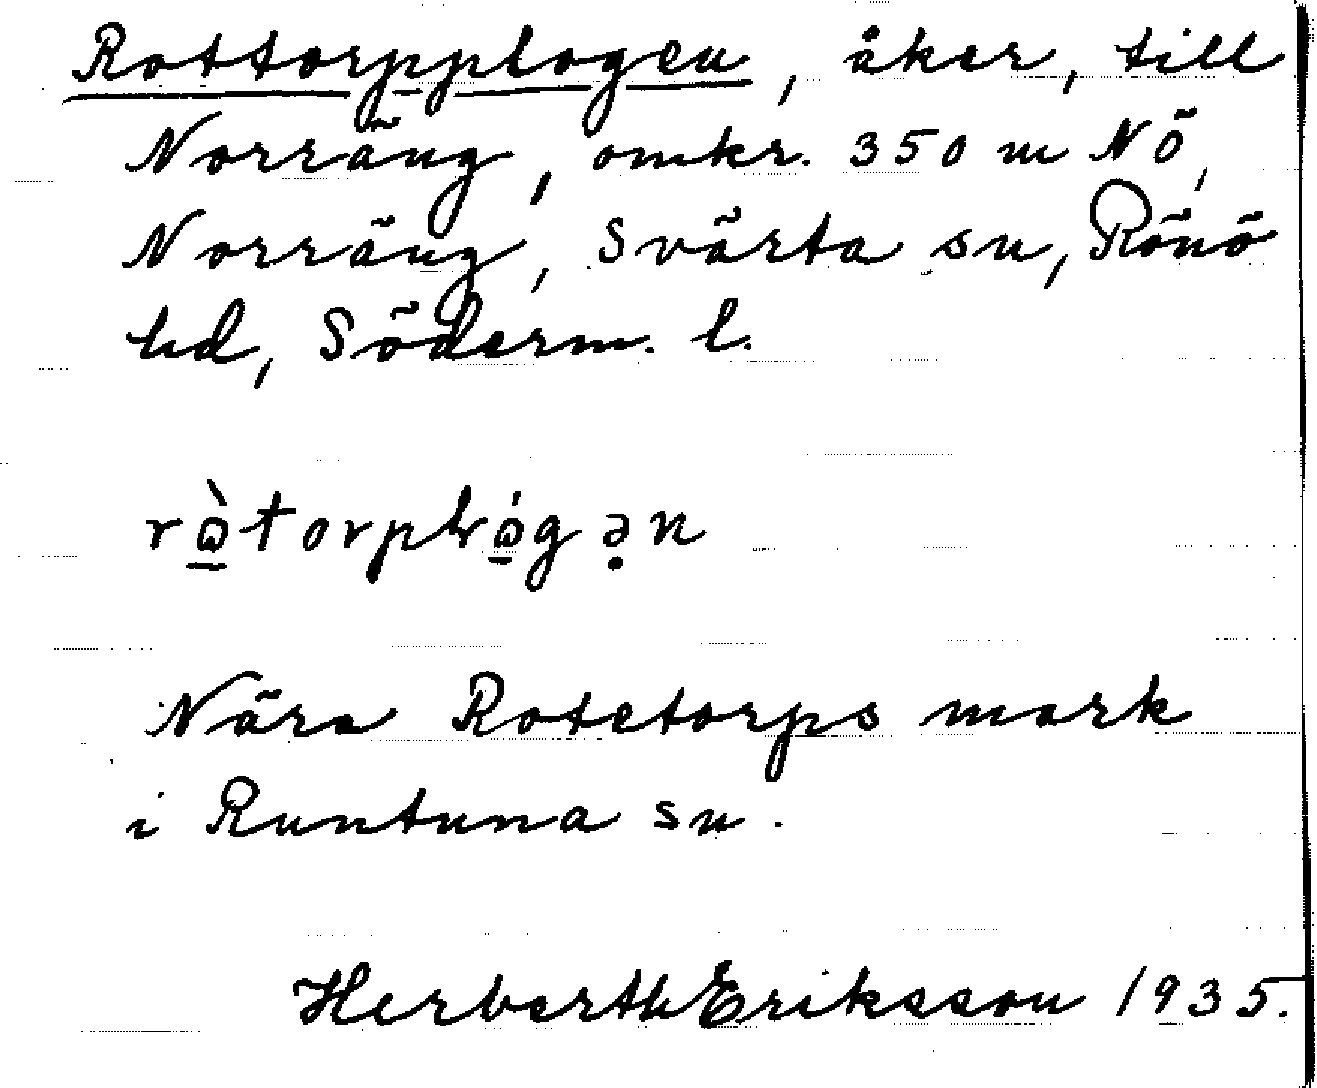 Rottorpplogen, åker, till
Norräng, omkr. 350 m NÖ,
Norräng, Svärta sn, Rönö
hd, Söderm. l.
Nära Rotetorps mark
i Runtuna sn.
Herberth Eriksson 1935.